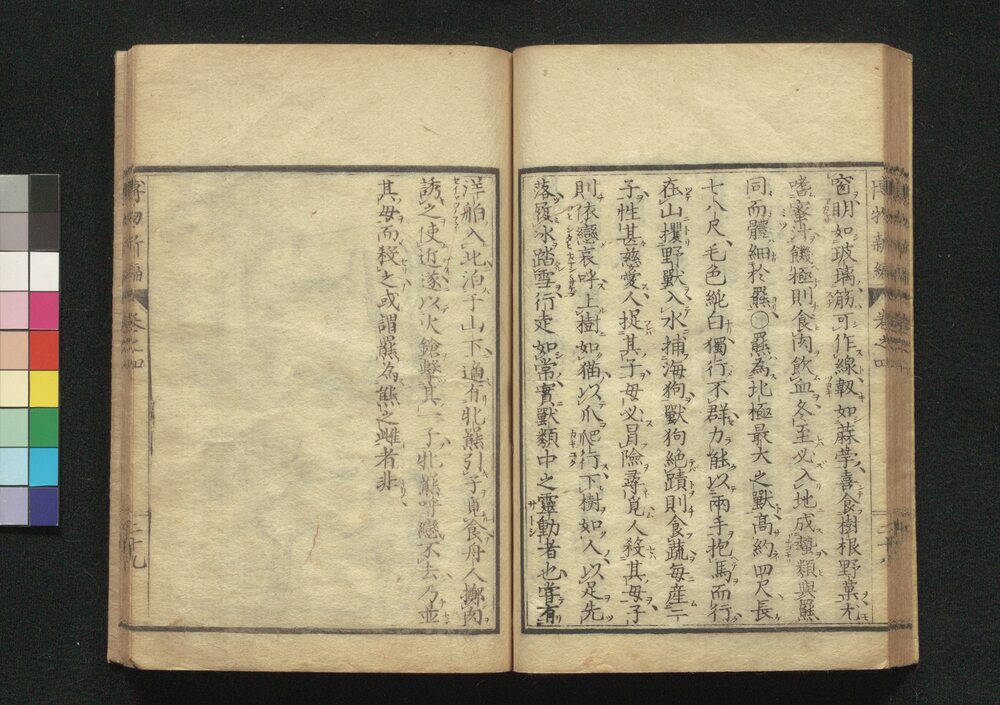 窗明如玻璃筋可作線韌如蔴苧喜食樹根野菓尤
嗜蜜汁饑極則食肉飲血冬至必入地成蟄類與羆
同而體細於羆〇羆為北極最大之獸高約四尺長
七八尺毛色純白獨行不群力能以兩手抱馬而行
在山攫野獸入水捕海狗獸狗絶蹟則食蔬每産二
子性甚慈愛人捉其子母必冒險尋覓人殺其母子
則依戀哀呼上樹如猫以爪爬行下樹如人以足先
落履氷踏雪行走如常實獸類中之靈動者也嘗有
博物新編
卷之四
二十八
洋舶入北泊于山下適有牝羆引子覓食舟人擲肉
誘之使近遂以火鎗擊其一子牝熊呼戀不去乃並
其母而殺之或謂羆為熊之雌者非
博物新編
卷之四
二十九